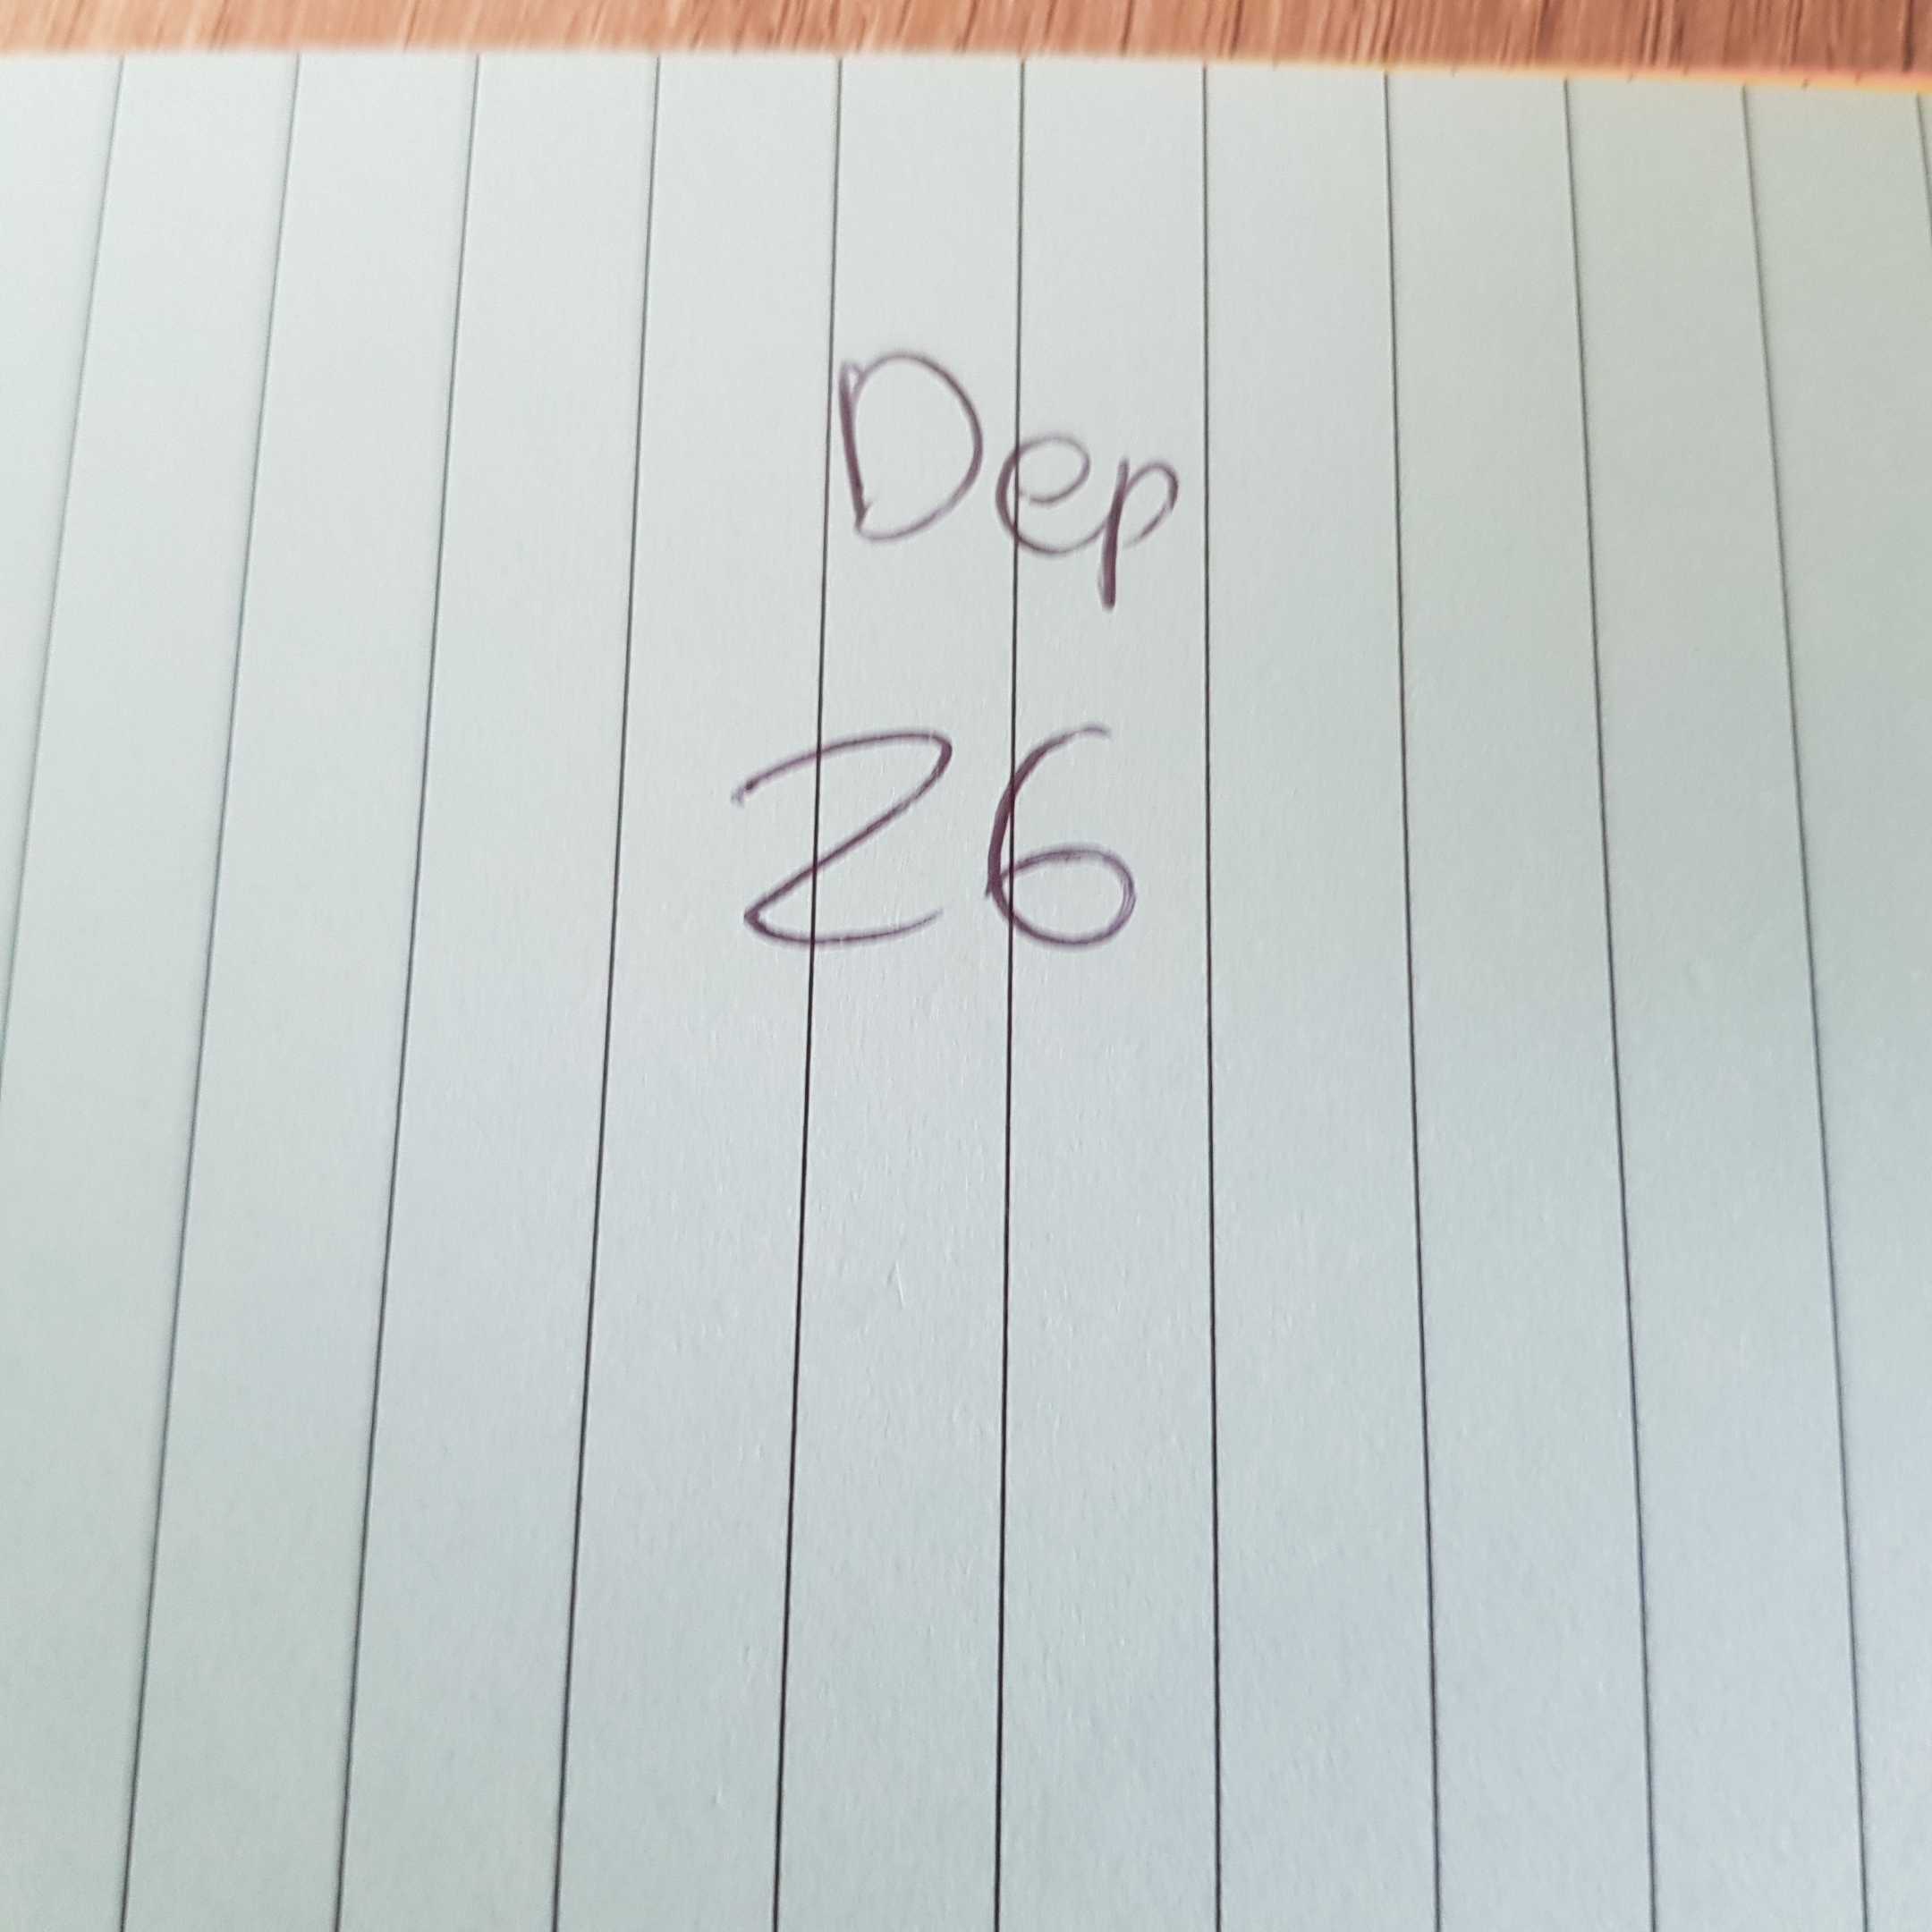 Dep
26